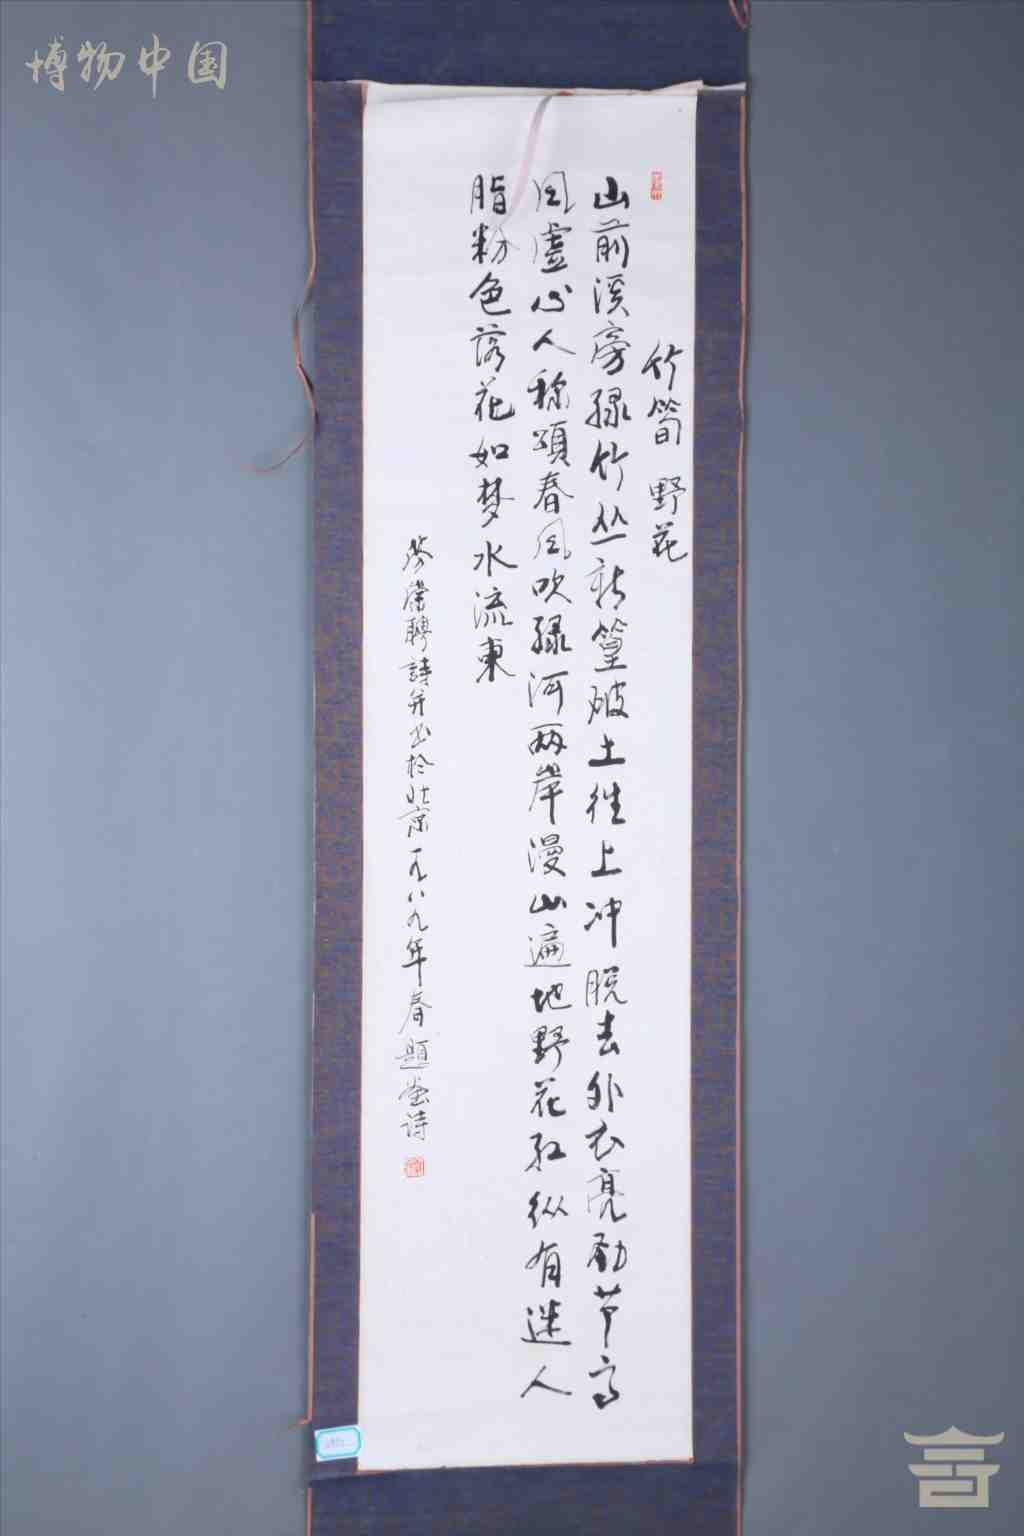 博物中国
竹筍 野花
山前溪旁绿竹丛新篁破土往上冲脱去外衣亮劲节高
风虚心人称颂春风吹绿河两岸漫山遍地野花红纵有迷人
脂粉色落花如梦水流東
荣聘詩并书於北京一九八九年春題画诗